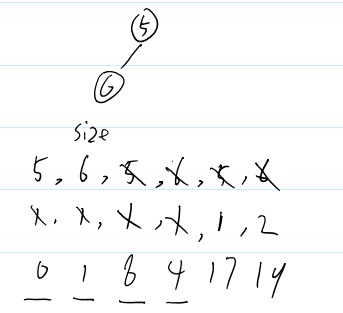 5
6
size
5, 6, 5, 6, 5, 6
x, x, x, x, 1, 2
0 1 8 4 17 14